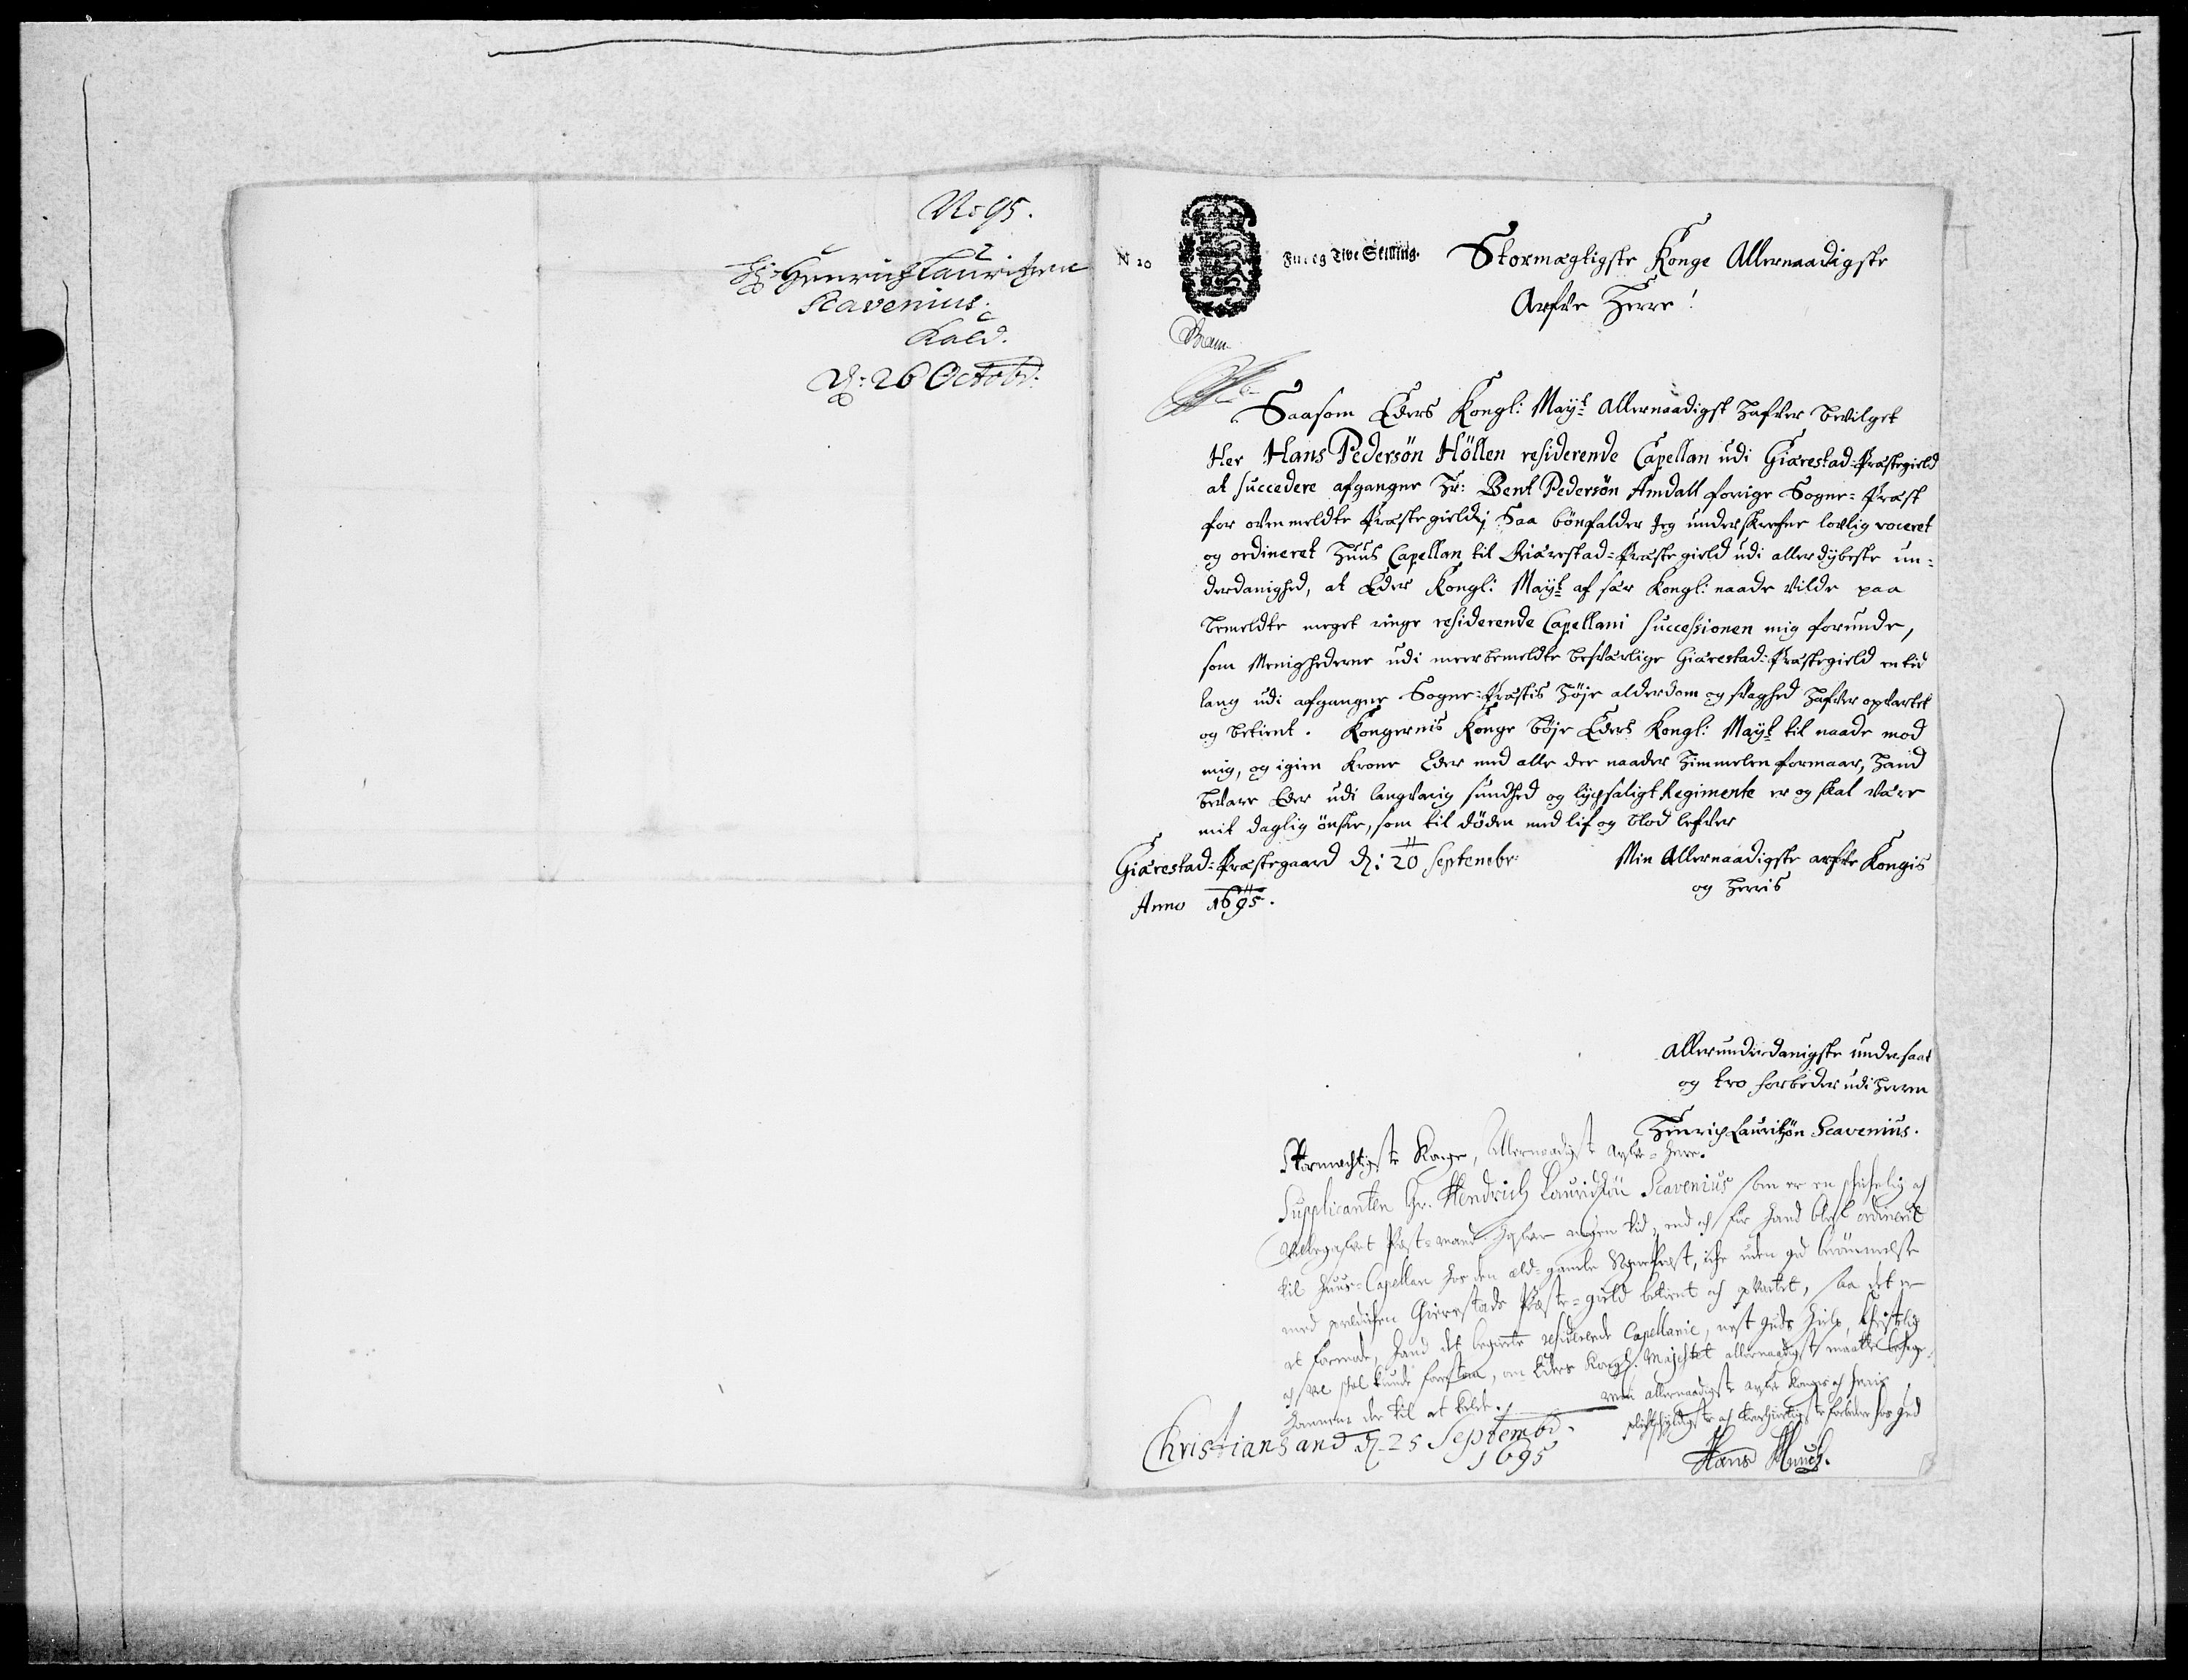 No 95.
Hr: Henrich Lauritzen
Scavenius.
Kald.
D: 26 Octobr:
N 20
Fire og Tive Skilling.
Stormægtigste Konge Allernaadigste
Arfve Herre!
Saasom Eders Kongl: Mayt: Allernaadigst hafver bevilget
Her Hans Pedersön Höllen residerende Capellan udi Giærestad-Præstegield
at succedere afgangne Hr: Bent Pedersön Amdall forrige Sogne-Præst
for ovenmeldte Præstegield; Saa bönfalder Jeg underskrefne lovlig voceret
og ordineret Huus Capellan til Giærestad-Præstegield udi allerdybeste un-
derdanighed, at Eders Kongl: Mayt: af sær Kongl: naade vilde paa
bemeldte meget ringe residerende Capellani Successionen mig forunde,
som Menighederne udi meerbemeldte besværlige Giærestad-Præstegield en tid
lang udi afgangne Sogne-Præstis høje alderdom og svaghed hafver opvartet
og betient. Kongernis Konge böje Eders Kongl: Mayt: til naade mod
mig, og igien krone Eder med alle de naader Himmelen formaar, Hand
bevare Eder udi langvarig sundhed og lycksaligt Regimente er og skal være
mit daglig önske, som til döden med lif og blod lefver
Giærestad-Præstegaard D: 20 Septembr:
Anno 1695.
Min Allernaadigste arfve Kongis
og Herris
Allerunderdanigste undersaat
og tro forbeder udi Herren
Henrich Lauritzön Scavenius.
Stormechtigste Konge, Allernaadigst Arfve-Herre.
Supplicanten Hr. Hendrich Lauridsön Scavenius som er en skichelig og
velbegafvet Præst-mand hafver nogen tid, end og för hand blef ordinerit
til Huus-Capellan hos den old-gamle Sognepræst, iche uden god berömmelse
med predichen Gierrestads Præste-gield betient og opvartet, saa det er
at formode, hand det begierte residerende Capellanie, nest Guds hielp, Christelig
og vel skal kunde forestaa, om Eders Kongl. Majestet allernaadigst maatte behage
hannem der til at kalde.
Min allernaadigste arfve Konges og Herris
plichtskyldigste og troehiertigste forbeder hos Gud
Christiansand D. 25 Septembr.
1695
Hans Munch.